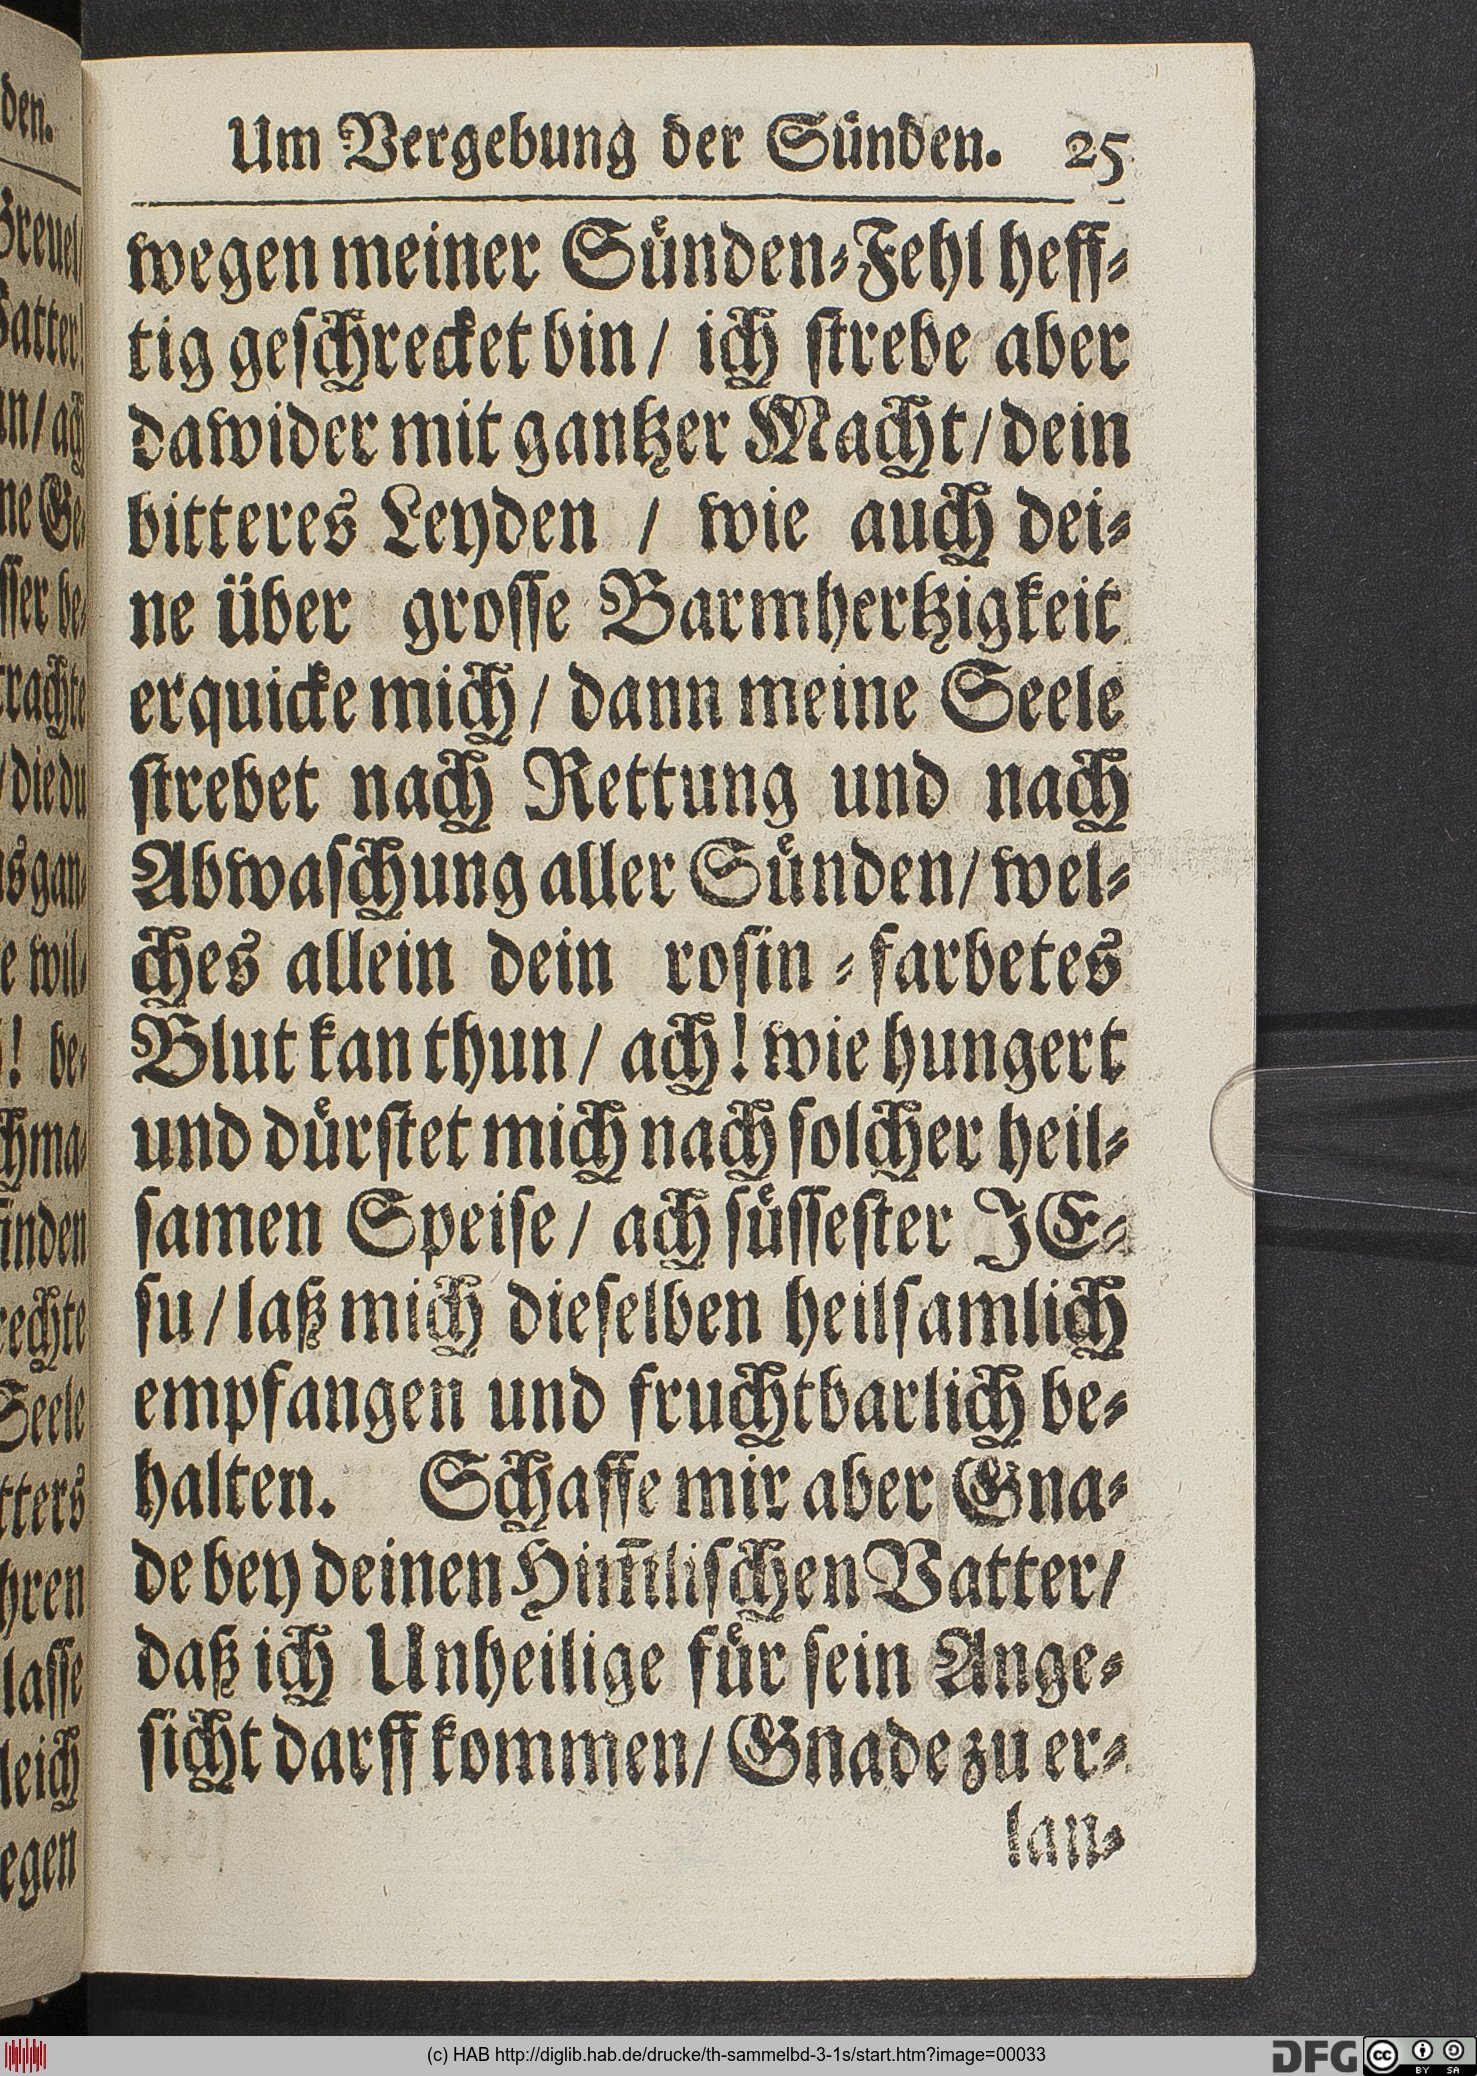 Um Vergebung der Sünden. 25
wegen meiner Sünden-Fehl heff-
tig geschrecket bin/ ich strebe aber
dawider mit gantzer Macht/ dein
bitteres Leyden / wie auch dei-
ne über grosse Barmhertzigkeit
erquicke mich/ dann meine Seele
strebet nach Rettung und nach
Abwaschung aller Sünden/ wel-
ches allein dein rosin-farbetes
Blut kan thun/ ach! wie hungert
und dürstet mich nach solcher heil-
samen Speise/ ach süssester JE-
su/ laß mich dieselben heilsamlich
empfangen und fruchtbarlich be-
halten. Schaffe mir aber Gna-
de bey deinen Him̄lischen Vatter/
daß ich Unheilige für sein Ange-
sicht darff kommen/ Gnade zu er-
lan-
(c) HAB http://diglib.hab.de/drucke/th-sammelbd-3-1s/start.htm?image=00033
DFG
cc BY SA